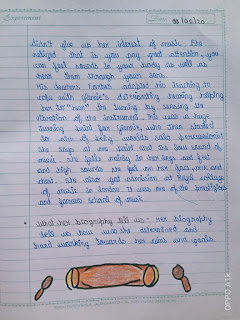 Experiment
Date
didn't give up her interest of music. She
noticed that is you pay great attention, you
can feel sounds in your body as well as
hear them through your ears.
His teachers further adapted his teaching to
cope with glennie's deteriorating hearing helping
her to "hear" the tuning by sensing the
vibration of the instrument. This was a huge
turning point for glennie, who then started
to
she says at one point that the low sound of
music, she felt mainly in her legs and feet
and high sounds she felt on her face, neck and
chest. She also got admission at Royal collage
of music in london it was one of the prestigious
and famous school of music.
What her biography tell us - Her biography
tell us how was she determined and
hard working towards her aims and goals.
OPPO A1k